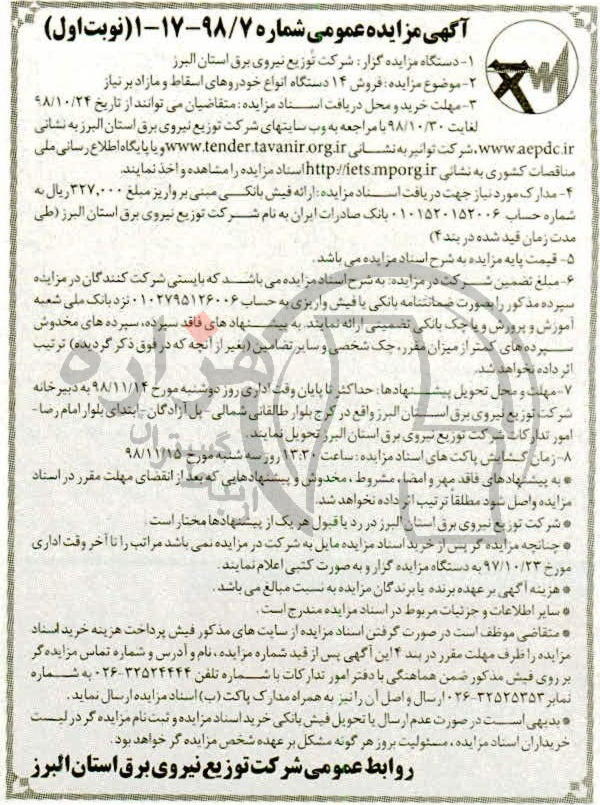 آگهی مزایده عمومی شماره ۹۸/۷-۱۷-۱ (نوبت اول)
۱- دستگاه مزایده گزار: شرکت توزیع نیروی برق استان البرز
۲- موضوع مزایده: فروش ۱۴ دستگاه انواع خودروهای اسقاط و مازاد بر نیاز
۳- مهلت خرید و محل دریافت اسناد مزایده: متقاضیان می توانند از تاریخ ۹۸/۱۰/۲۴
لغایت ۹۸/۱۰/۳۰ با مراجعه به وب سایتهای شرکت توزیع نیروی برق استان البرز به نشانی
www.aepdc.ir، شرکت توانیر به نشانی www.tender.tavanir.org.ir و یا پایگاه اطلاع رسانی ملی
مناقصات کشوری به نشانی http://iets.mporg.ir اسناد مزایده را مشاهده و اخذ نمایند.
۴- مدارک مورد نیاز جهت دریافت اسناد مزایده: ارائه فیش بانکی مبنی بر واریز مبلغ ۳۲۷,۰۰۰ ریال به
شماره حساب ۰۱۰۱۵۲۰۱۵۲۰۰۶ بانک صادرات ایران به نام شرکت توزیع نیروی برق استان البرز (طی
مدت زمان قید شده در بند ۴)
۵- قیمت پایه مزایده به شرح اسناد مزایده می باشد.
۶- مبلغ تضمین شرکت در مزایده: به شرح اسناد مزایده می باشد که بایستی شرکت کنندگان در مزایده
سپرده مذکور را بصورت ضمانتنامه بانکی یا فیش واریزی به حساب ۰۱۰۲۷۹۵۱۲۶۰۰۶ نزد بانک ملی شعبه
آموزش و پرورش و یا چک بانکی تضمینی ارائه نمایند. به پیشنهادهای فاقد سپرده، سپرده های مخدوش
سپرده های کمتر از میزان مقرر، چک شخصی و سایر تضامین (بغیر از آنچه که در فوق ذکر گردیده) ترتیب
اثر داده نخواهد شد.
۷- مهلت و محل تحویل پیشنهادها: حداکثر تا پایان وقت اداری روز دوشنبه مورخ ۹۸/۱۱/۱۴ به دبیرخانه
شرکت توزیع نیروی برق استان البرز واقع در کرج بلوار طالقانی شمالی - پل آزادگان - ابتدای بلوار امام رضا -
امور تدارکات شرکت توزیع نیروی برق استان البرز تحویل نمایند.
۸- زمان گشایش پاکت های اسناد مزایده: ساعت ۱۳:۳۰ روز سه شنبه مورخ ۹۸/۱۱/۱۵
* به پیشنهادهای فاقد مهر و امضا، مشروط، مخدوش و پیشنهادهایی که بعد از انقضای مهلت مقرر در اسناد
مزایده واصل شود مطلقا ترتیب اثر داده نخواهد شد.
* شرکت توزیع نیروی برق استان البرز در رد یا قبول هر یک از پیشنهادها مختار است
* چنانچه مزایده گر پس از خرید اسناد مزایده مایل به شرکت در مزایده نمی باشد مراتب را تا آخر وقت اداری
مورخ ۹۷/۱۰/۲۳ به دستگاه مزایده گزار و به صورت کتبی اعلام نمایند.
* هزینه آگهی بر عهده برنده یا برندگان مزایده به نسبت مبالغ می باشد.
* سایر اطلاعات و جزئیات مربوط در اسناد مزایده مندرج است.
* متقاضی موظف است در صورت گرفتن اسناد مزایده از سایت های مذکور فیش پرداخت هزینه خرید اسناد
مزایده را ظرف مهلت مقرر در بند ۴ این آگهی پس از قید شماره مزایده، نام و آدرس و شماره تماس مزایده گر
بر روی فیش مذکور ضمن هماهنگی با دفتر امور تدارکات با شماره تلفن ۳۲۵۲۴۴۴۴-۰۲۶ به شماره
نمابر ۳۲۵۲۵۳۵۳-۰۲۶ ارسال و اصل آن را نیز به همراه مدارک پاکت (ب) اسناد مزایده ارسال نماید.
* بدیهی است در صورت عدم ارسال یا تحویل فیش بانکی خرید اسناد مزایده و ثبت نام مزایده گر در لیست
خریداران اسناد مزایده، مسئولیت بروز هر گونه مشکل بر عهده شخص مزایده گر خواهد بود.
روابط عمومی شرکت توزیع نیروی برق استان البرز
هزاره